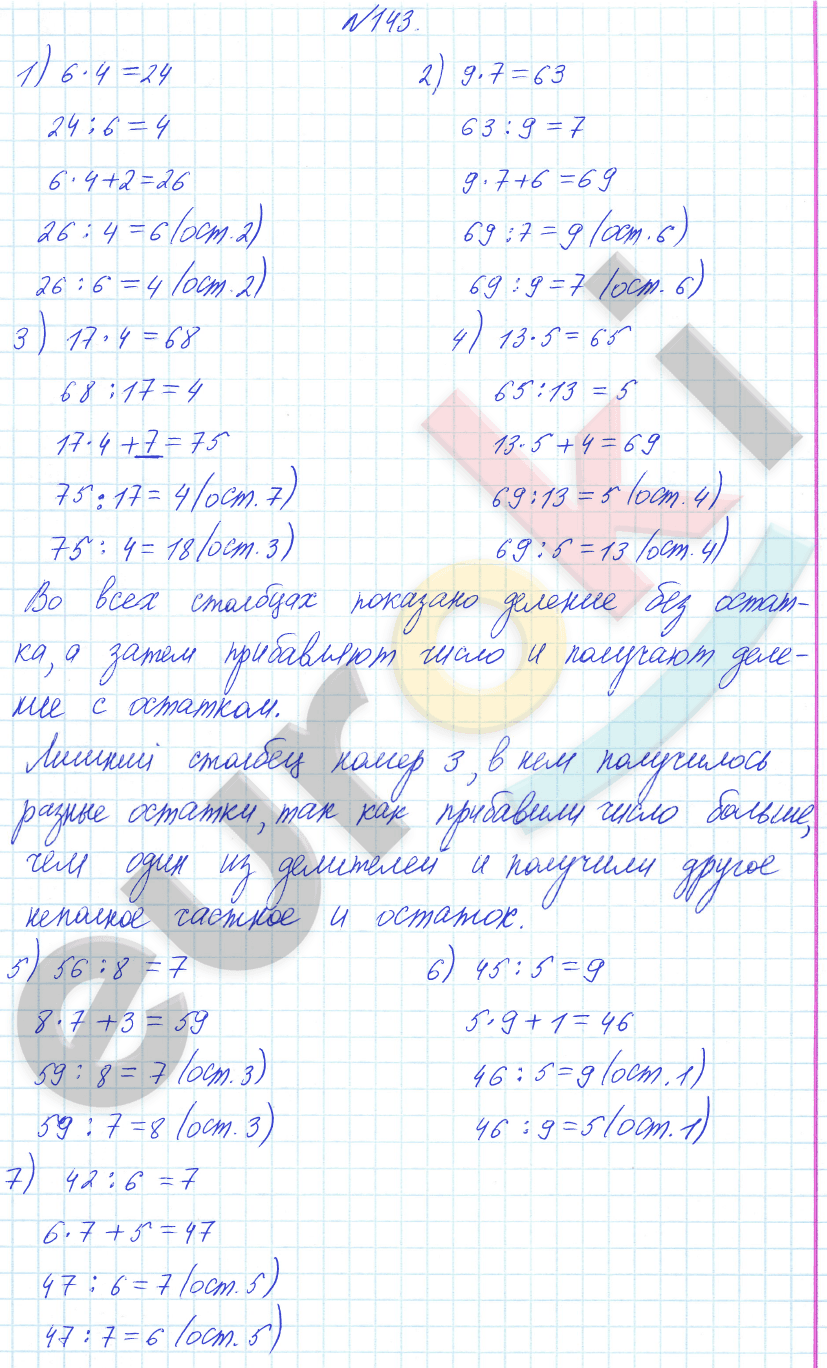 №143.
1) 6·4=24
24:6=4
6·4+2=26
26:4=6(ост.2)
26:6=4(ост.2)
2) 9·7=63
63:9=7
9·7+6=69
69:7=9(ост.6)
69:9=7 (ост.6)
3) 17·4=68
68:17=4
17·4+7=75
75:17=4(ост.7)
75:4=18(ост.3)
4) 13·5=65
65:13=5
13·5+4=69
69:13=5(ост.4)
69:5=13(ост.4)
Во всех столбцах показано деление без остат-
ка, а затем прибавляют число и получают деле-
ние с остатком.
Лишний столбец номер 3, в нем получилось
разные остатки, так как прибавили число больше,
чем один из делителей и получили другое
неполное частное и остаток.
5) 56:8=7
8·7+3=59
59:8=7(ост.3)
59:7=8(ост.3)
6) 45:5=9
5·9+1=46
46:5=9(ост.1)
46:9=5(ост.1)
7) 42:6=7
6·7+5=47
47:6=7(ост.5)
47:7=6(ост.5)
euroki